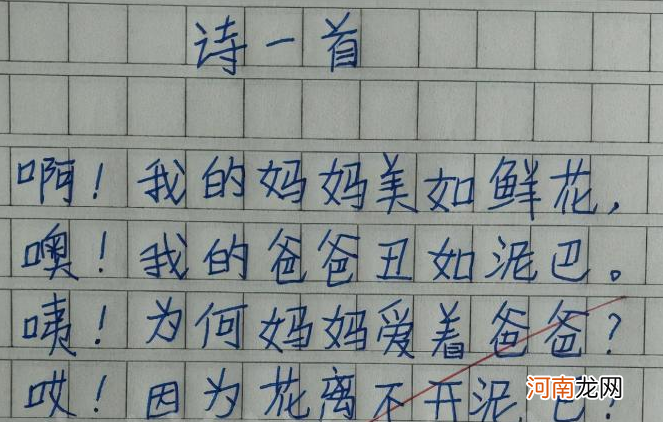 诗一首
啊！我的妈妈美如鲜花，
噢！我的爸爸丑如泥巴。
咦！为何妈妈爱着爸爸？
哎！因为花离不开泥巴！
河南龙网